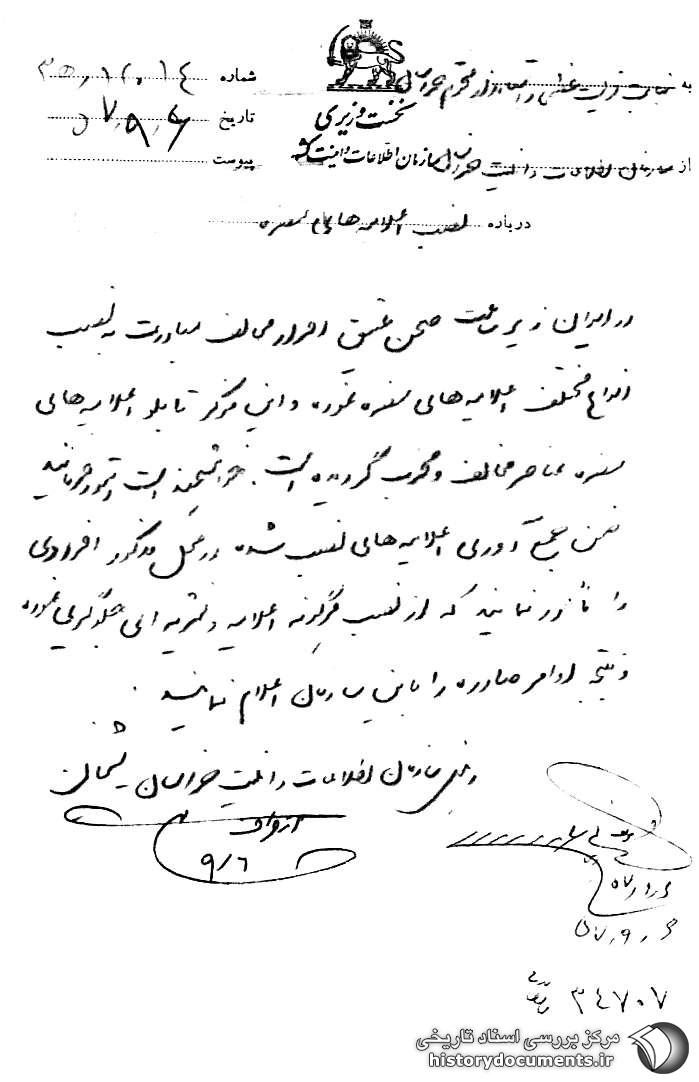 به نیابت تولیت عظمی و استاندار محترم خراسان
شماره ۳۵,۱۲,۱۴
نخست وزیری
تاریخ ۵۷,۹,۶
از سازمان اطلاعات و امنیت خراسان
سازمان اطلاعات و امنیت کشور
پیوست
درباره نصب اعلامیه‌های مضره
در ایوان زیر ساعت صحن عتیق افراد مخالف مبادرت به نصب
انواع مختلف اعلامیه‌های مضره نموده و این مرکز تابلو اعلامیه‌های
مضره عناصر مخالف و مخرب گردیده است. خواهشمند است دستور فرمائید
ضمن جمع آوری اعلامیه‌های نصب شده در محل مذکور افرادی
را مأمور نمایند که از نصب هرگونه اعلامیه و نشریه‌ای جلوگیری نموده
و نتیجه اوامر صادره را باین سازمان اعلام نمایند.
رئیس سازمان اطلاعات و امنیت خراسان شیخان
از طرف
۹/۶
۵۷,۹,۶
۳۴۷۰۷
مرکز بررسی اسناد تاریخی
historydocuments.ir